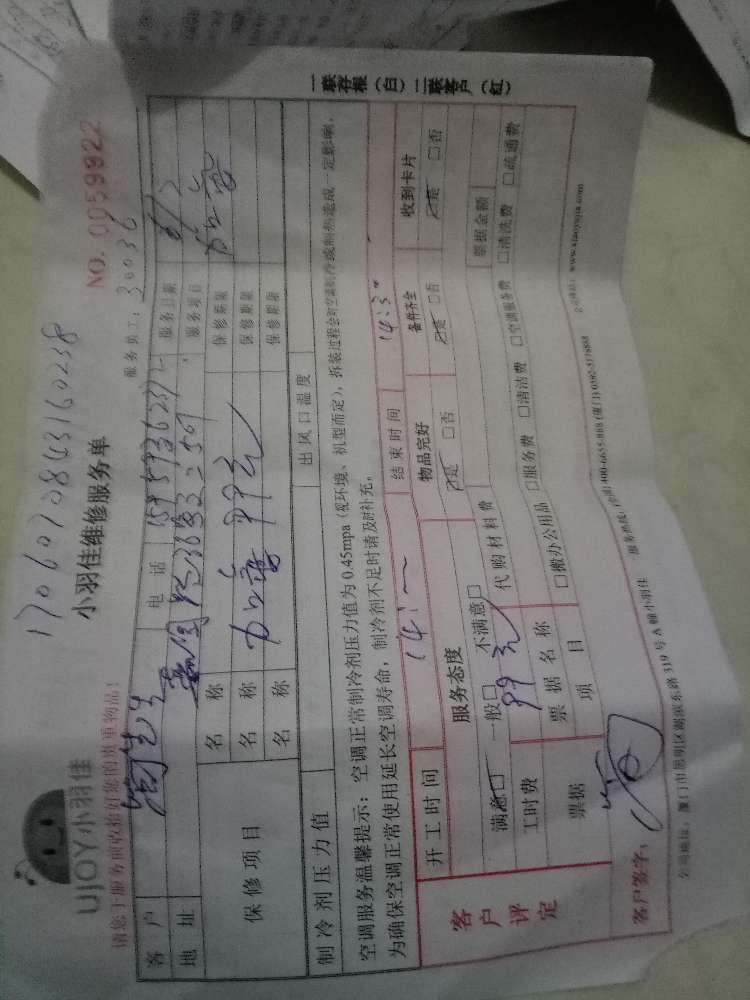 17060708431602​38
UJOY小羽佳
小羽佳维修服务单
NO. 0059922
请您于服务前收拾好您的贵重物品!
服务员工: 30036
客户 电话 服务日期 6/2
地址 服务项目 加雪
保修项目 名称 保修期限
名称 加雪 99元 保修期限
名称 保修期限
制冷剂压力值 出风口温度
空调服务温馨提示: 空调正常制冷剂压力值为0.45mpa (视环境、机型而定), 拆装过程会对空调制冷或制热造成一定影响,
为确保空调正常使用延长空调寿命, 制冷剂不足时请及时补充。
客户评定
开工时间 14:一 结束时间 14:3
服务态度 物品完好 备件齐全 收到卡片
满意□ 一般□ 不满意□ □是 □否 □是 □否 □是 □否
工时费 99元 代购材料费 票据金额
票据 票据名称
项目 □搬办公用品 □服务费 □清洁费 □空调服务费 □清洗费 □疏通费
客户签字:
公司地址: 厦门市思明区湖滨东路319号A幢小羽佳 服务热线: (全国) 400-6655-888 (厦门) 0592-5178888 公司网站: www.xiaoyujia.com
一联存根 (白) 二联客户 (红)